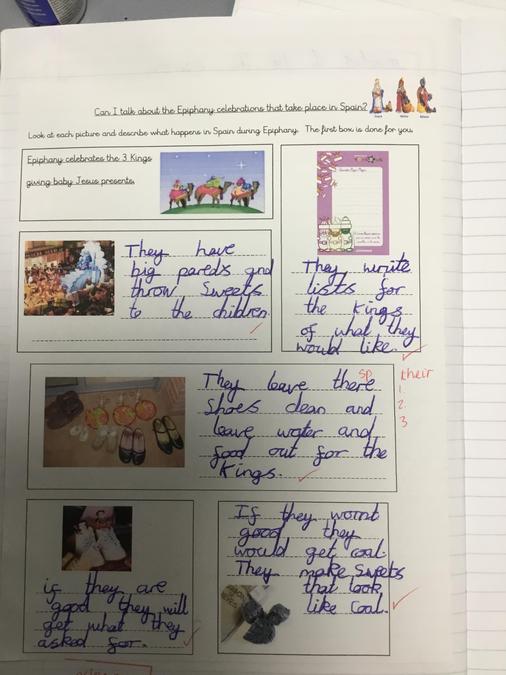 Can I talk about the Epiphany celebrations that take place in Spain?
Look at each picture and describe what happens in Spain during Epiphany. The first box is done for you.
Epiphany celebrates the 3 Kings
giving baby Jesus presents.
They have
big pareds and
throw Sweets
to the children.
They wriite
lists for
the Kings
of what they
would like.
They leave there
Shoes clean and
leave water and
food out for the
Kings.
sp
their
1.
2.
3
if they are
good they will
get what they
asked for.
If they wornt
good they
would get coal
They make Sweets
that look
like Coal.